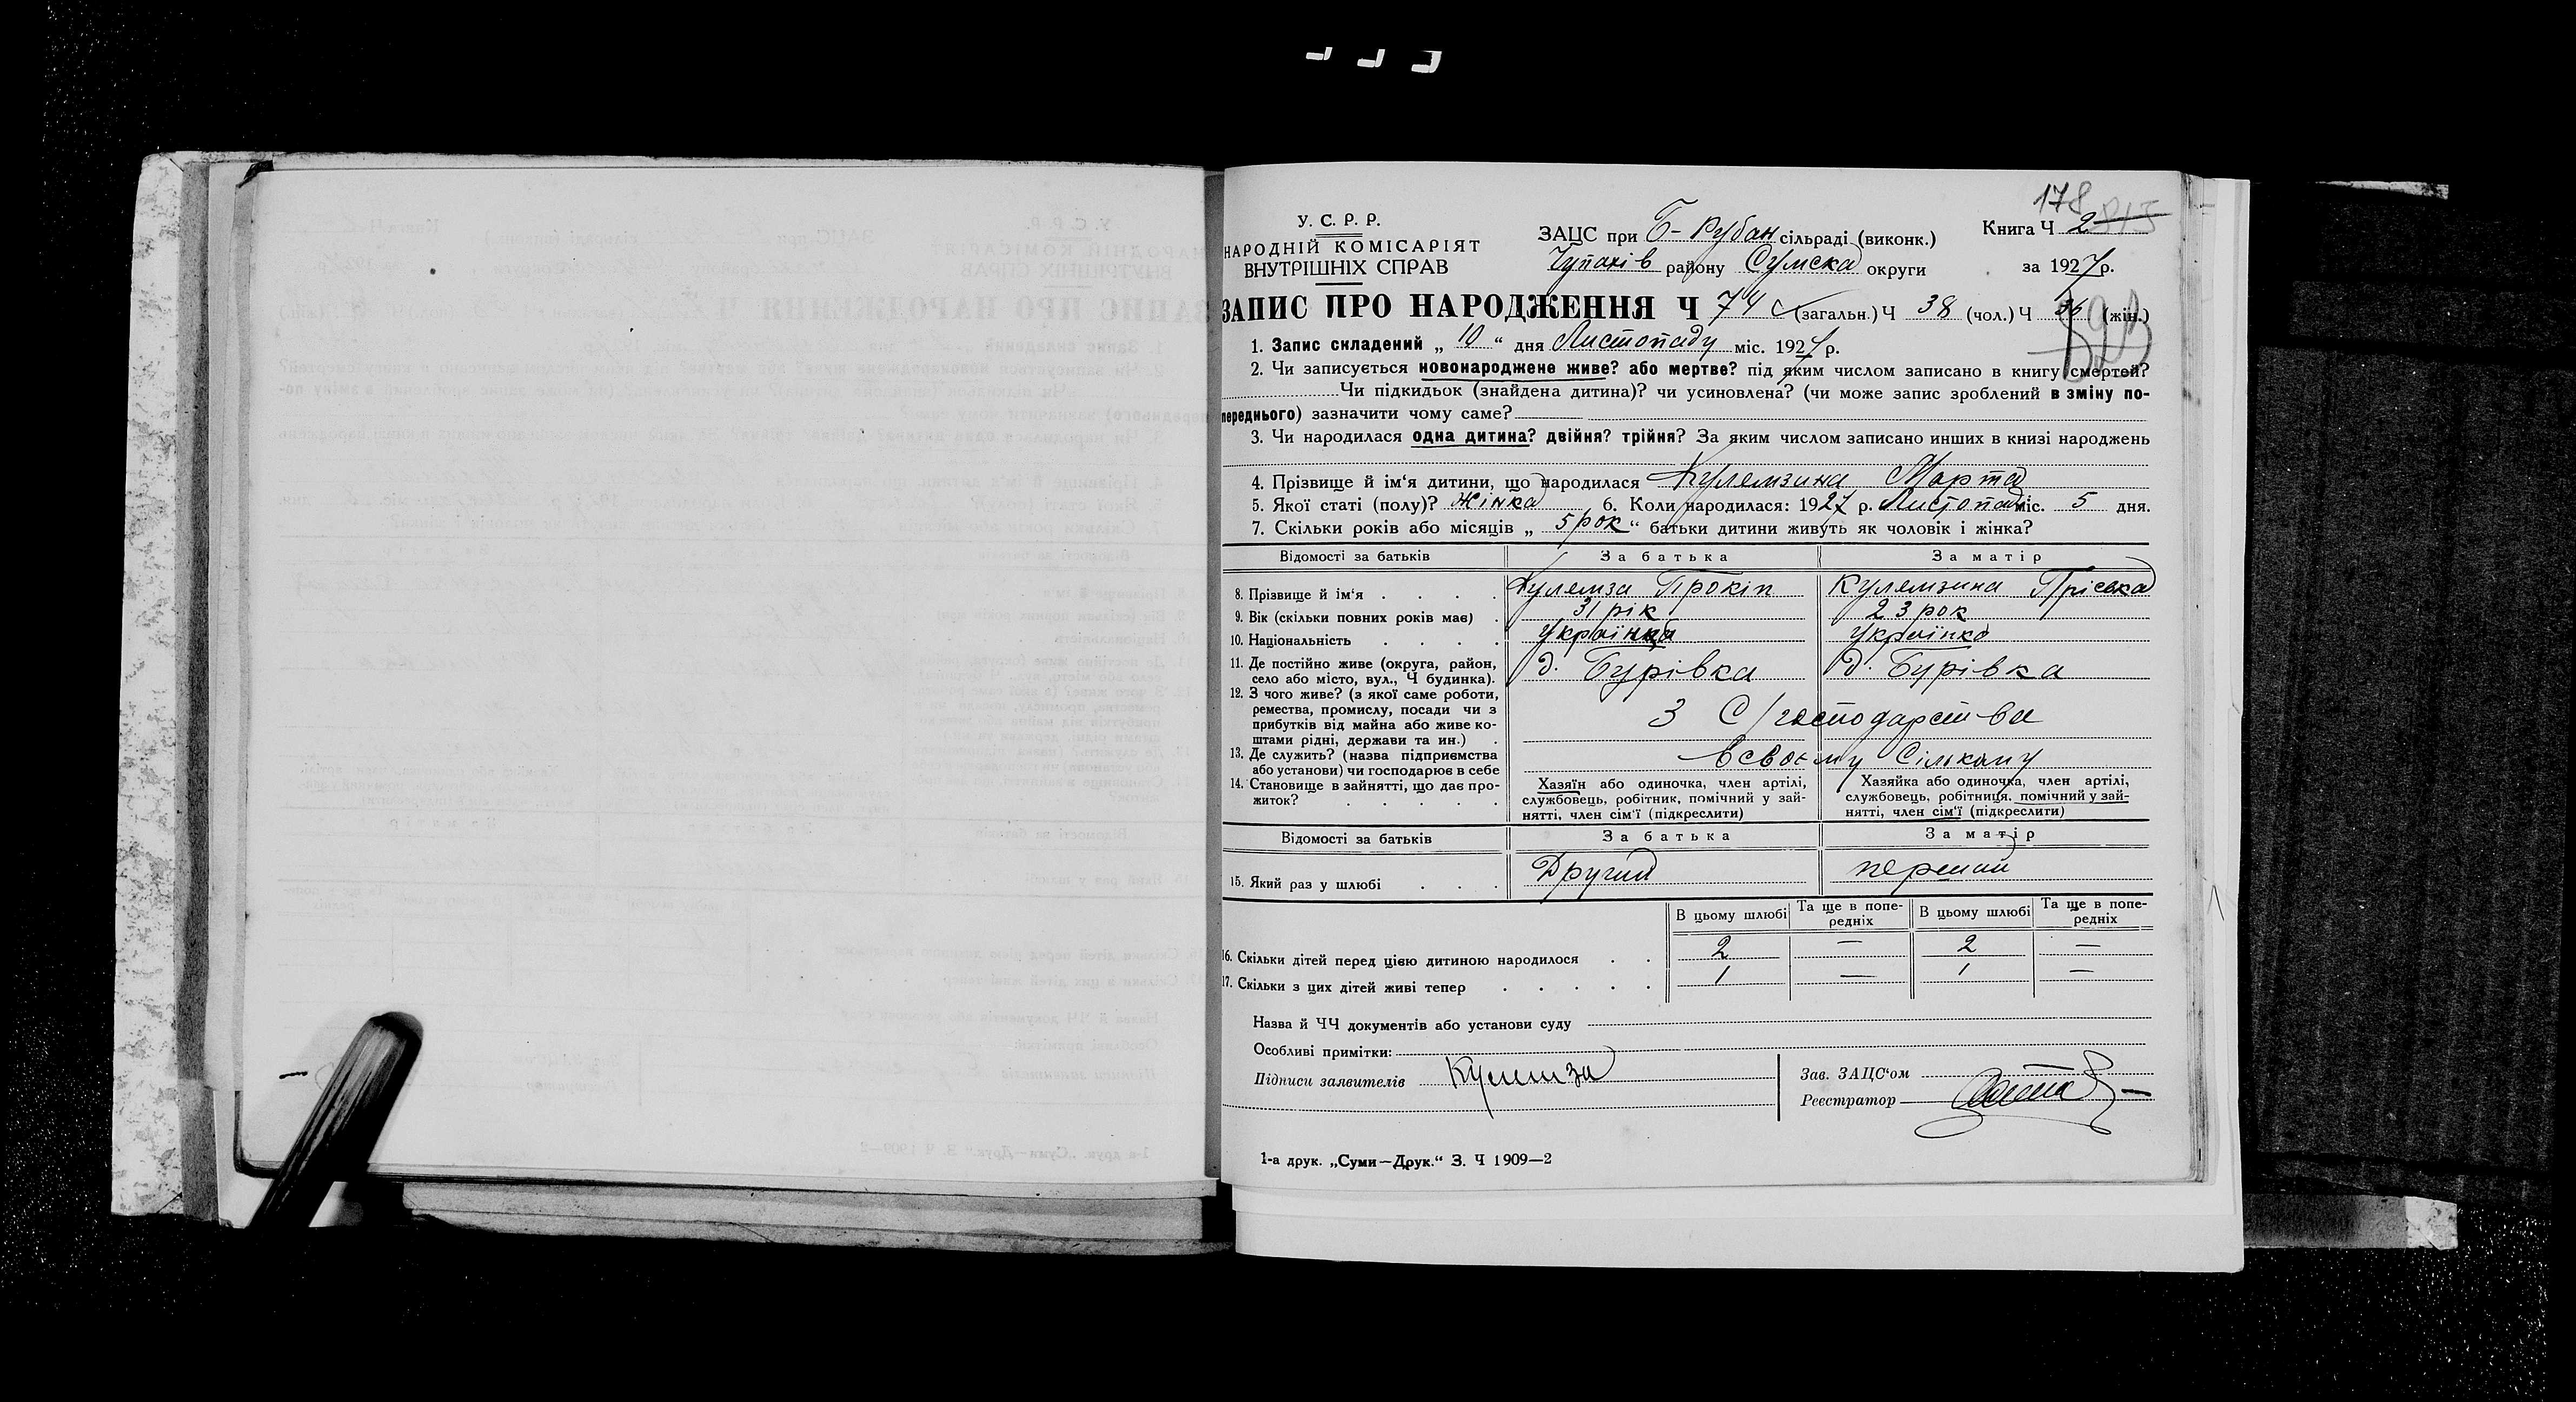 178
У. С. Р. Р.
НАРОДНІЙ КОМІСАРІЯТ
ВНУТРІШНІХ СПРАВ
ЗАЦС при Б-Рубан сільраді (виконк.)
Книга Ч 2
Чупахів району Сумска округи
за 1927 р.
ЗАПИС ПРО НАРОДЖЕННЯ Ч 74 (загальн.) Ч 38 (чол.) Ч 36 (жін.)
1. Запис складений „ 10 “ дня Листопаду міс. 1927 р.
2. Чи записується новонароджене живе? або мертве? під яким числом записано в книгу смертей?
Чи підкидьок (знайдена дитина)? чи усиновлена? (чи може запис зроблений в зміну по-
переднього) зазначити чому саме?
3. Чи народилася одна дитина? двійня? трійня? За яким числом записано инших в книзі народжень
4. Прізвище й ім‘я дитини, що народилася Кулемзина Марта
5. Якої статі (полу)? жінка 6. Коли народилася: 1927 р. Листопад міс. 5 дня.
7. Скільки років або місяців „ 5 рок “ батьки дитини живуть як чоловік і жінка?
Відомості за батьків За батька За матір
8. Прізвище й ім‘я . . . . Кулемза Прокіп Кулемзина Пріська
9. Вік (скільки повних років має) . 31 рік 23 рок
10. Національність . . . . Українка
11. Де постійно живе (округа, район,
село або місто, вул., Ч будинка). д. Бурівка д. Бурівка
12. З чого живе? (з якої саме роботи,
ремества, промислу, посади чи з
прибутків від майна або живе ко-
штами рідні, держави та ин.) . З С/господарства
13. Де служить? (назва підприємства
або установи) чи господарює в себе всвоєму
14. Становище в зайнятті, що дає про-
житок? . . . . .
Хазяїн або одиночка, член артілі,
службовець, робітник, помічний у зай-
нятті, член сім‘ї (підкреслити)
Хазяйка або одиночка, член артілі,
службовець, робітниця, помічний у зай-
нятті, член сім‘ї (підкреслити)
Відомості за батьків За батька За матір
15. Який раз у шлюбі . . . Другий перший
В цьому шлюбі Та ще в попе-
редніх В цьому шлюбі Та ще в попе-
редніх
16. Скільки дітей перед цією дитиною народилося . . 2 — 2 —
17. Скільки з цих дітей живі тепер . . . . . 1 — 1 —
Назва й ЧЧ документів або установи суду
Особливі примітки:
Підписи заявителів Кулемза
Зав. ЗАЦС‘ом
Реєстратор
1-а друк. „Суми—Друк.“ З. Ч 1909—2